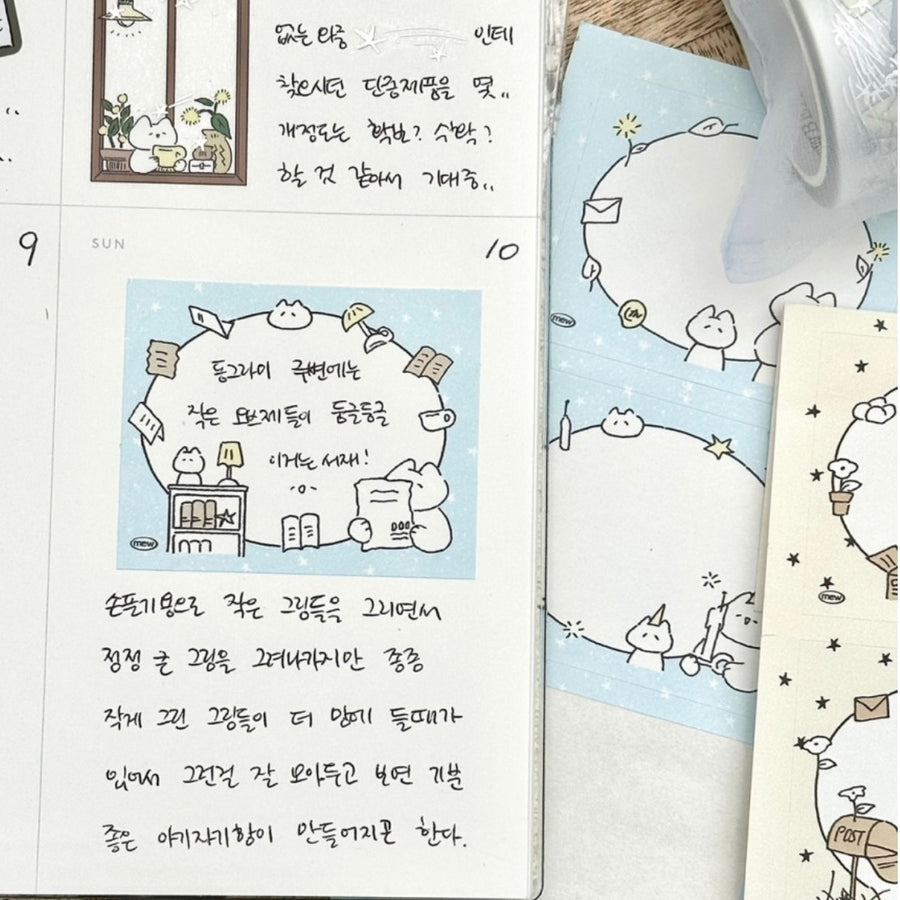 없는 와중 인테
찾으시던 단종제품을 몇..
개정도는 확보? 수확?
할 것 같아서 기대중..
9
SUN
10
동그라미 주변에는
작은 오브제들이 둥글둥글
이거는 서재!
·o·
DOO
mew
손풀기용으로 작은 그림들을 그리면서
점점 큰 그림을 그려나가지만 종종
작게 그린 그림들이 더 맘에 들때가
있어서 그런걸 잘 모아두고 보면 기분
좋은 아기자기함이 만들어지곤 한다.
mew
mew
POST